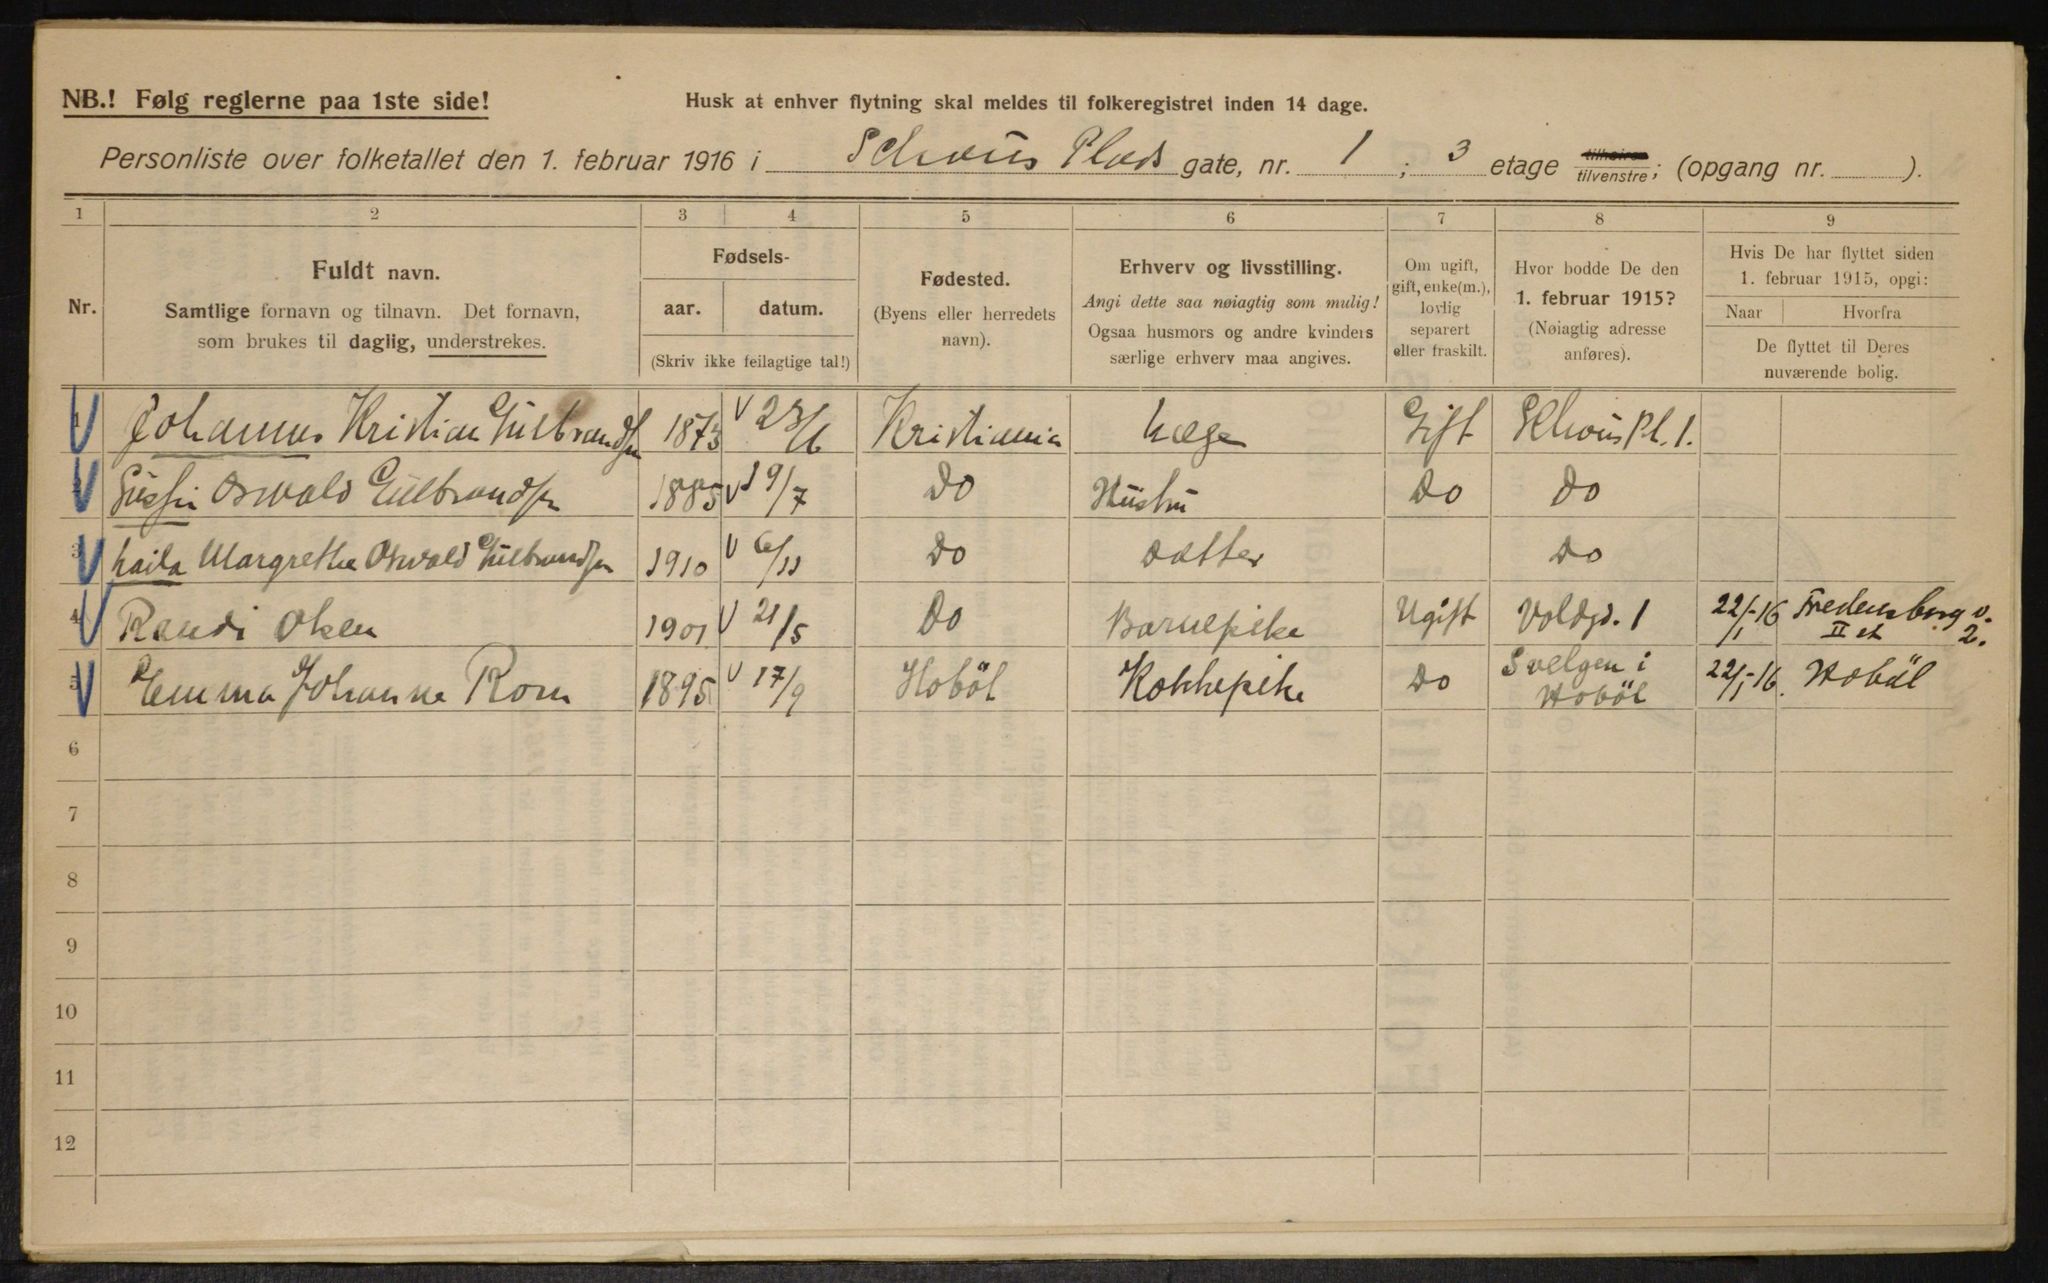 NB.! Følg reglerne paa 1ste side!
Husk at enhver flytning skal meldes til folkeregistret inden 14 dage.
Personliste over folketallet den 1. februar 1916 i Schous Plads gate, nr. 1; 3 etage tilhøire tilvenstre; (opgang nr. ).
1 2 3 4 5 6 7 8 9
Nr.
Fuldt navn.
Samtlige fornavn og tilnavn. Det fornavn,
som brukes til daglig, understrekes.
Fødsels-
aar. datum.
(Skriv ikke feilagtige tal!)
Fødested.
(Byens eller herredets
navn).
Erhverv og livsstilling.
Angi dette saa nøiagtig som mulig!
Ogsaa husmors og andre kvinders
særlige erhverv maa angives.
Om ugift,
gift, enke(m.),
lovlig
separert
eller fraskilt.
Hvor bodde De den
1. februar 1915?
(Nøiagtig adresse
anføres).
Hvis De har flyttet siden
1. februar 1915, opgi:
Naar Hvorfra
De flyttet til Deres
nuværende bolig.
1 Johannes Kristian Gulbrandsen 1873 V 23/6 Kristiania Læge Gift Schous Pl. 1.
2 Oswald Gulbrandsen 1885 V 19/7 Do Hustru Do Do
3 Laila Margrethe Oswald Gulbrandsen 1910 V 6/11 Do Datter Do
4 Randi Olsen 1901 V 21/5 Do Barnepike Ugift Voldgd. 1 22/1-16 Fredensborg v. 2. II et
5 Emma Johanne Rom 1895 V 17/9 Hobøl Kokkepike Do Svelgen i Hobøl 22/1-16. Hobøl
6
7
8
9
10
11
12